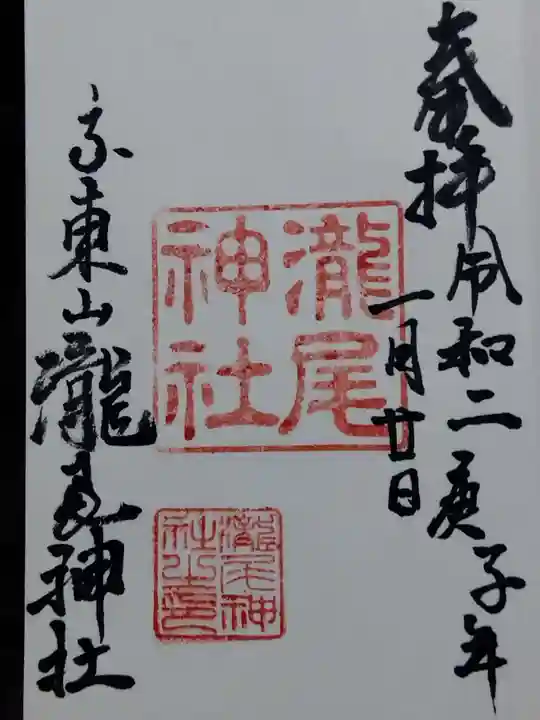 奉拝
令和二庚子年
一月廿日
瀧尾
神社
瀧尾神
社之印
京東山瀧尾神社